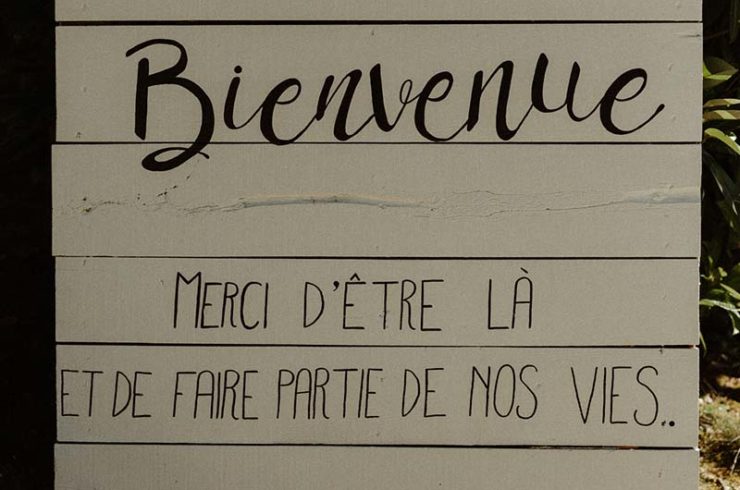 Bienvenue
MERCI D'ÊTRE LÀ
ET DE FAIRE PARTIE DE NOS VIES..